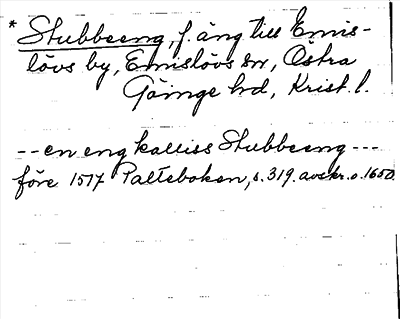 * Stubbeeng, f. äng till Emis-
lövs by, Emislövs sn, Östra
Göinge hd, Krist. l.
-- en eng kalliss Stubbeeng ---
före 1517 Palteboken, s. 319. avskr. o. 1650.